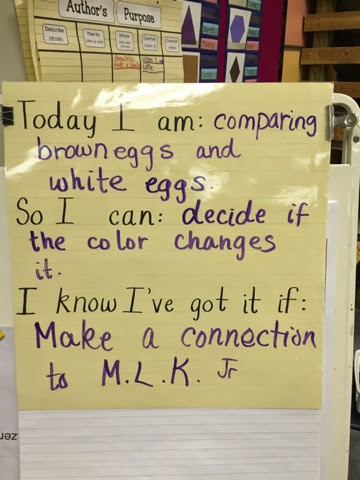 Author's Purpose
Describe
How to
Inform
Today I am: comparing
brown eggs and
white eggs.
So I can: decide if
the color changes
it.
I know I've got it if:
Make a connection
to M.L.K. Jr